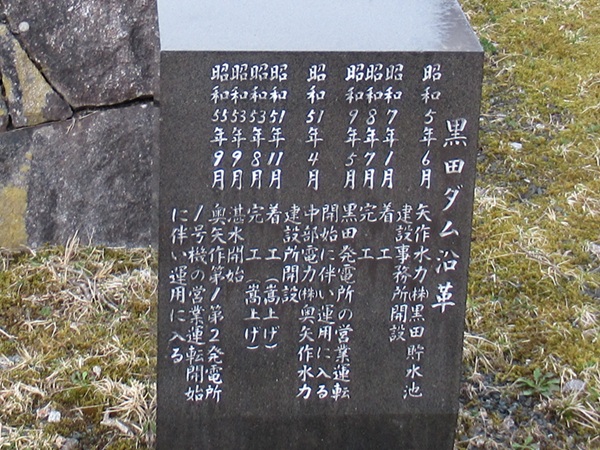 黒田ダム沿革
昭和5年6月 矢作水力(株)黒田貯水池
建設事務所開設
昭和7年1月 着工
昭和8年7月 完工
昭和9年5月 黒田発電所の営業運転
開始に伴い運用に入る
昭和51年4月 中部電力(株)奥矢作水力
建設所開設
昭和51年11月 着工(嵩上げ)
昭和53年8月 完工(嵩上げ)
昭和53年9月 湛水開始
昭和55年9月 奥矢作第1第2発電所
1号機の営業運転開始
に伴い運用に入る